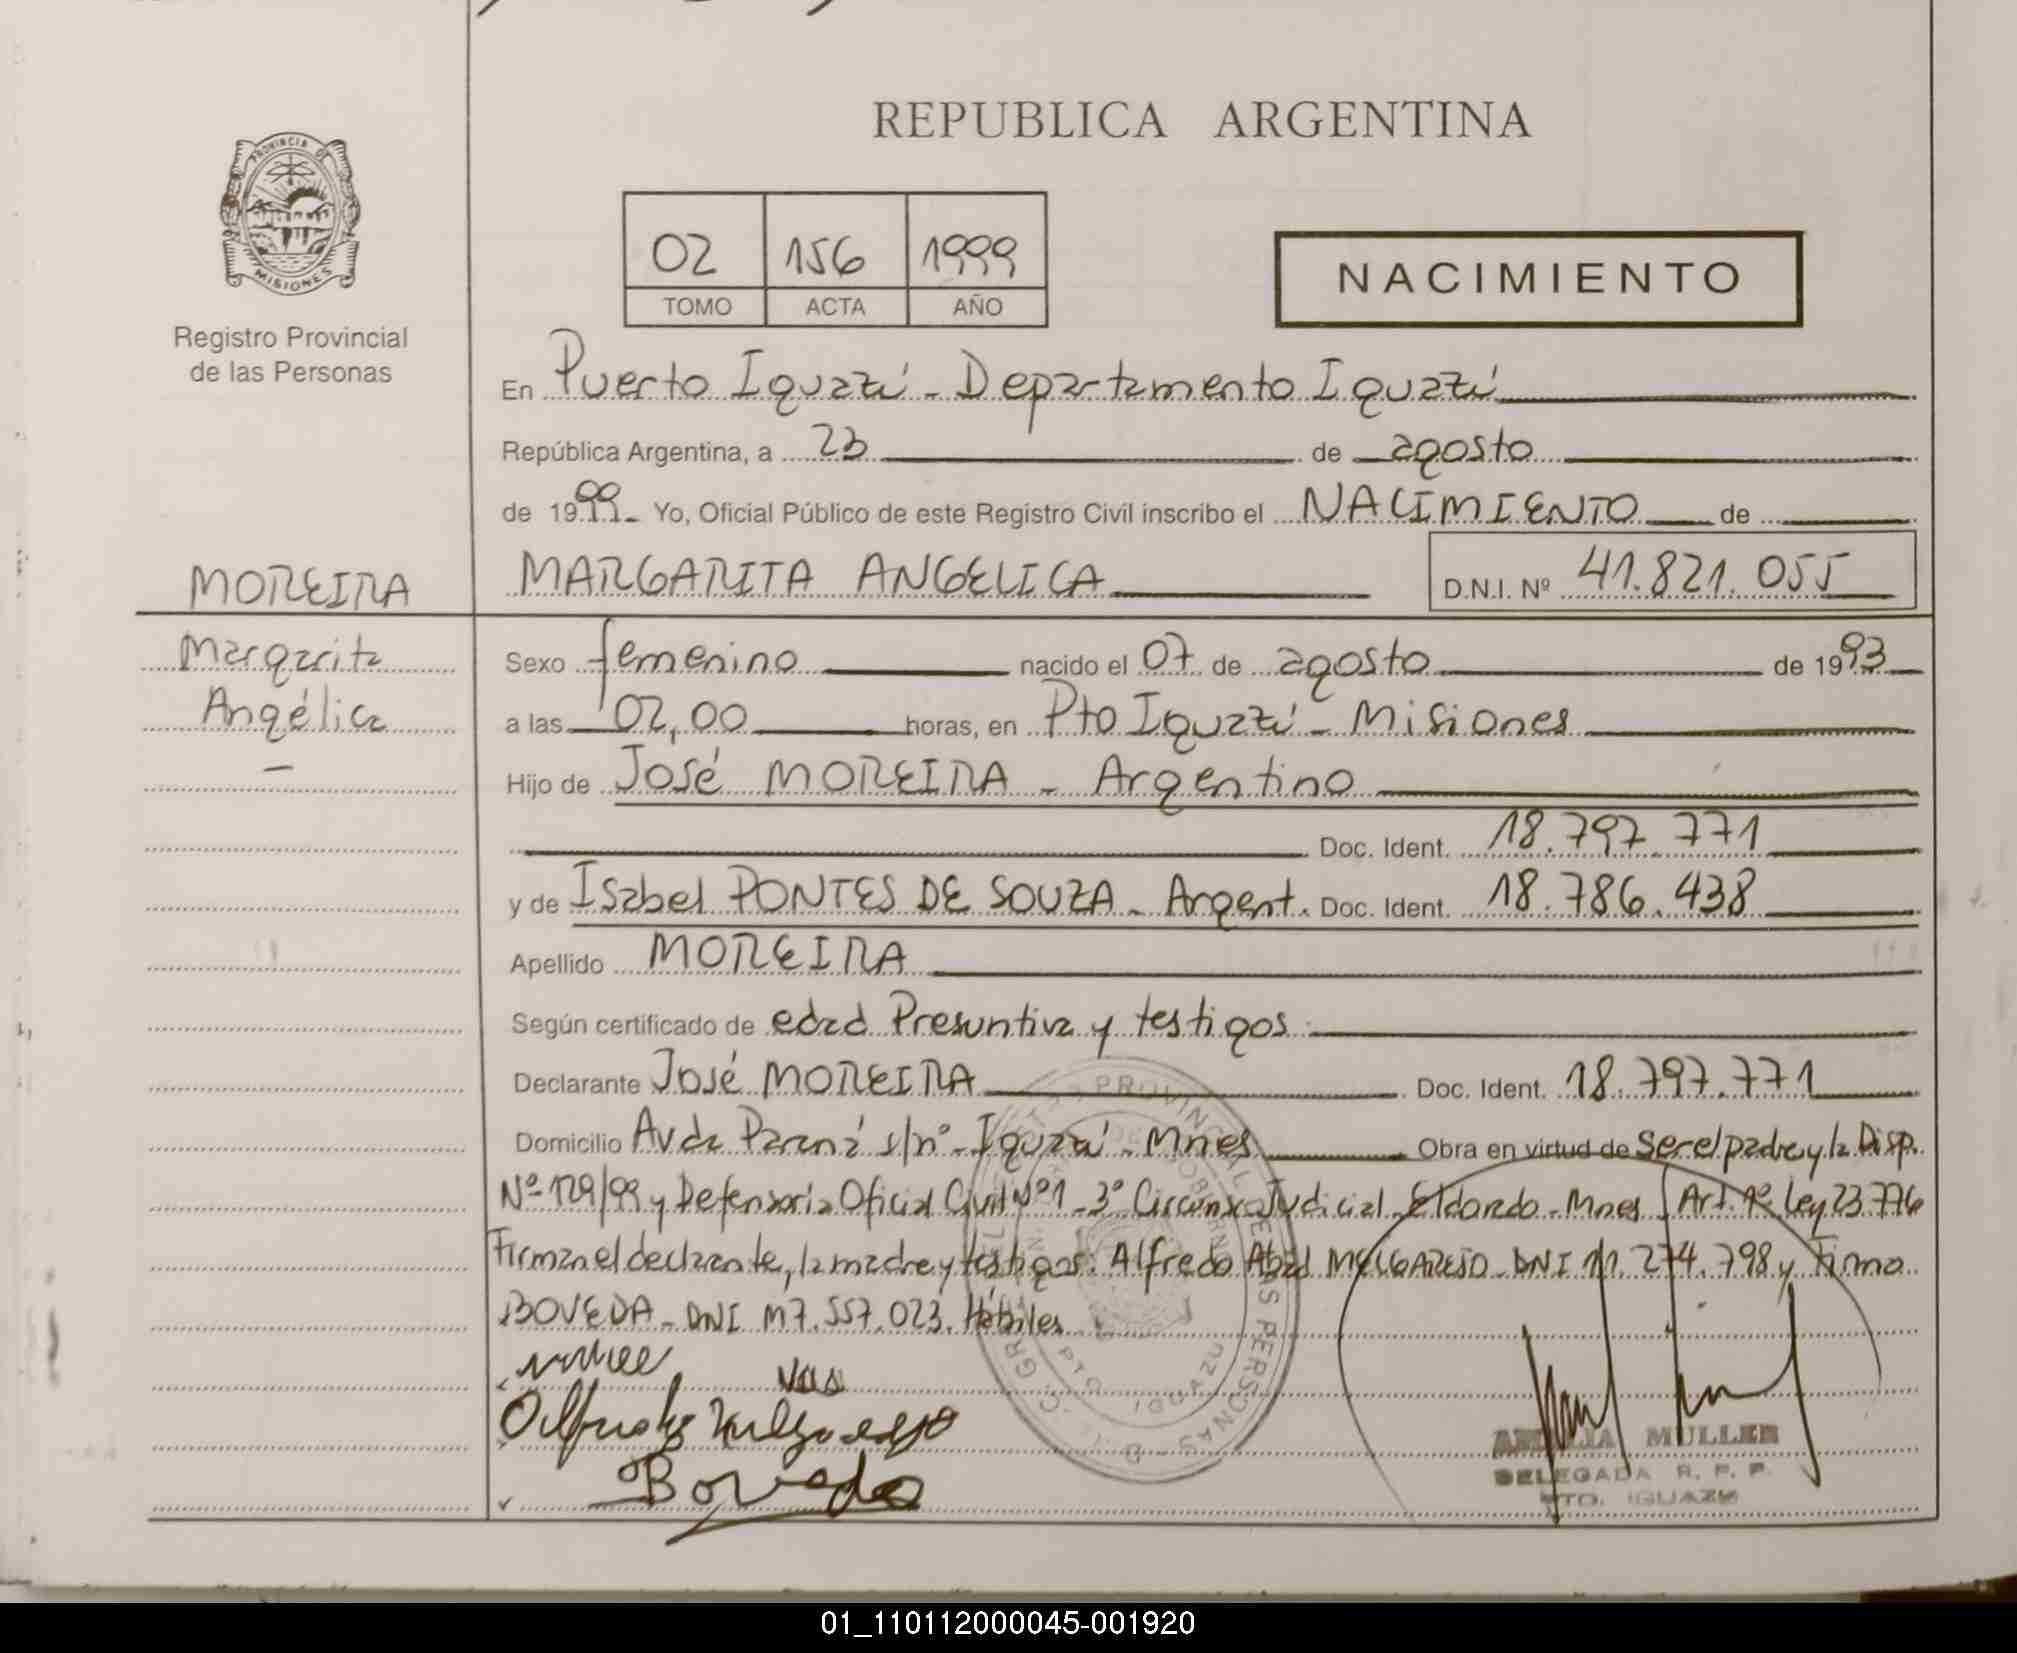 REPUBLICA ARGENTINA
PROVINCIA DE
MISIONES
Registro Provincial
de las Personas
02 156 1999
TOMO ACTA AÑO
NACIMIENTO
En Puerto Iguazú - Departamento Iguazú
República Argentina, a 23 de agosto
de 1999 Yo, Oficial Público de este Registro Civil inscribo el NACIMIENTO de
MOREIRA
MARGARITA ANGELICA D.N.I. Nº 41.821.055
Margarita
Angélica
Sexo femenino nacido el 07 de agosto de 1993
a las 02,00 horas, en Pto Iguazú - Misiones
Hijo de José MOREIRA - Argentino
Doc. Ident. 18.797.771
y de Isabel PONTES DE SOUZA - Argent. Doc. Ident. 18.786.438
Apellido MOREIRA
Según certificado de edad Presuntiva y testigos
Declarante José MOREIRA Doc. Ident. 18.797.771
Domicilio Avda Paraná s/nº - Iguazú - Mnes Obra en virtud de Ser el padre y la Disp.
Nº 129/99 y Defensoría Oficial Civil Nº 1 - 3º Circunsc. Judicial - Eldorado - Mnes Art. 1º Ley 23776
Firman el declarante, la madre y testigos: Alfredo Abad MELGAREJO - DNI 11.274.798 y
BOVEDA - DNI M7.557.023. Hábiles
Boveda
AMALIA MULLER
DELEGADA R. P. P.
PTO. IGUAZU
01_110112000045-001920